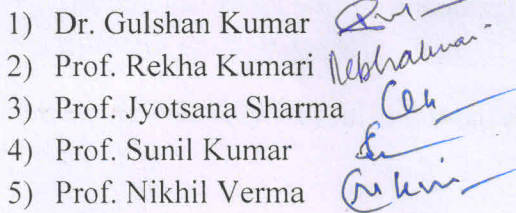 1) Dr. Gulshan Kumar
2) Prof. Rekha Kumari
3) Prof. Jyotsana Sharma
4) Prof. Sunil Kumar
5) Prof. Nikhil Verma